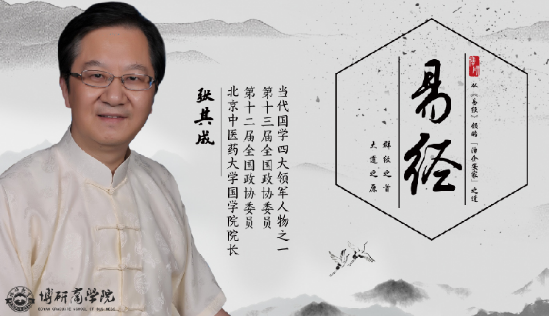 从《易经》领略「治企安家」之道
易经
群经之首
大道之原
当代国学四大领军人物之一
第十三届全国政协委员
第十二届全国政协委员
北京中医药大学国学院院长
张其成
博研商学院